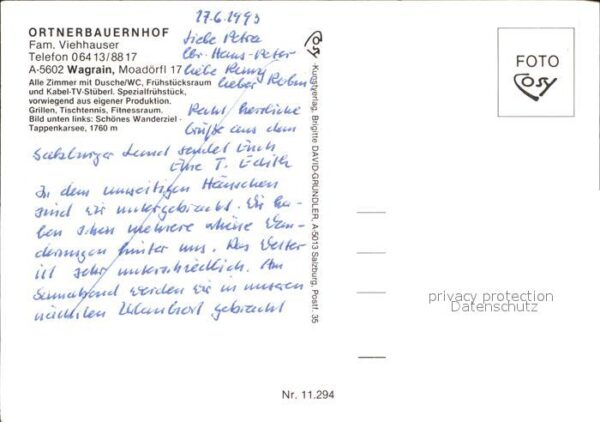 ORTNERBAUERNHOF
Fam. Viehhauser
Telefon 06413/8817
A-5602 Wagrain, Moadörfl 17
Alle Zimmer mit Dusche/WC, Frühstücksraum
und Kabel-TV-Stüberl. Spezialfrühstück,
vorwiegend aus eigener Produktion.
Grillen, Tischtennis, Fitnessraum.
Bild unten links: Schönes Wanderziel -
Tappenkarsee, 1760 m
17.6.1993
Liebe Petra
lbr. Hans-Peter
liebe Renny
lieber Robin
Recht herzliche
Grüße aus dem
Salzburger Land sendet Euch
Eure T. Edith
In dem umseitigen Häuschen
sind wir untergebracht. Wir ha-
ben schon mehrere schöne Wan-
derungen hinter uns. Das Wetter
ist sehr unterschiedlich. Am
Sonnabend werden wir in unseren
nächsten Urlaubsort gebracht
Cosy
-Kunstverlag, Brigitte DAVID-GRÜNDLER, A-5013 Salzburg, Postf. 35
FOTO
Cosy
privacy protection
Datenschutz
Nr. 11.294